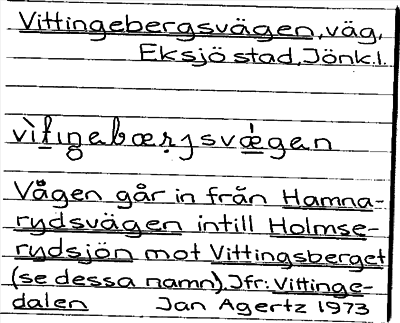 Vittingebergsvägen, väg,
Eksjö stad, Jönk.l.
vìt̲ıŋebæru̯jsvǽgen
Vägen går in från Hamna-
rydsvägen intill Holmse-
rydsjön mot Vittingsberget
(se dessa namn). Jfr: Vittinge-
dalen Jan Agertz 1973